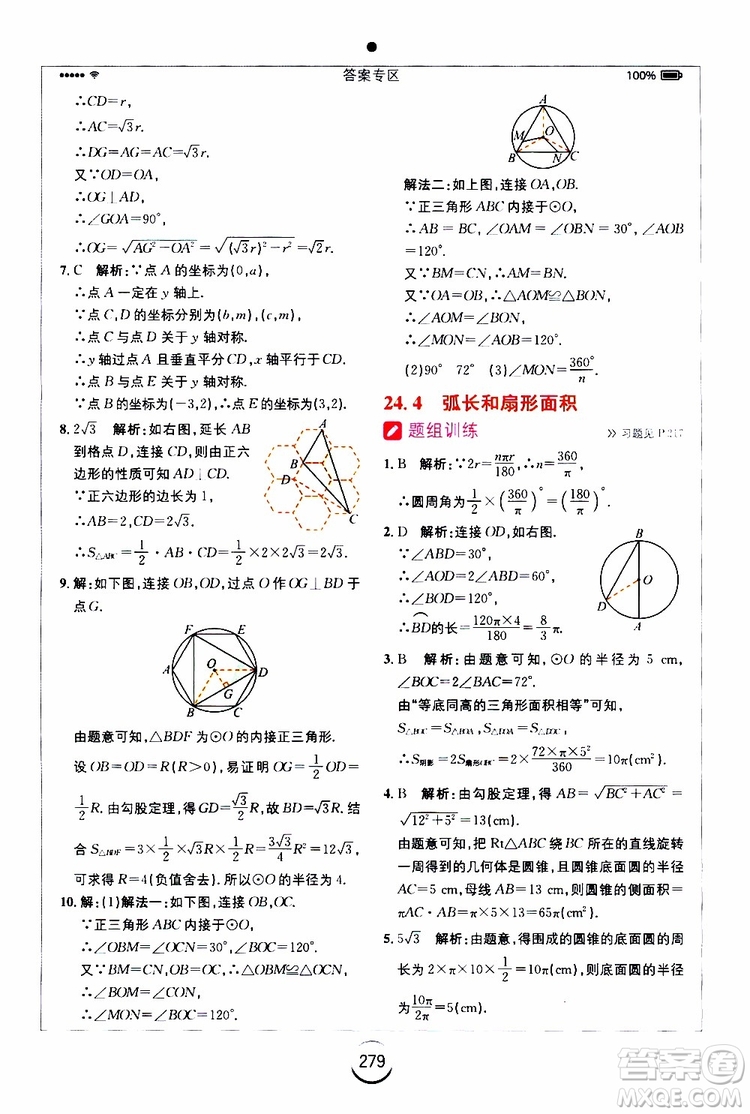 答案专区
100%
∴CD=r,
∴AC=√3r.
∴DG=AG=AC=√3r.
又∵OD=OA,
∴OG⊥AD,
∴∠GOA=90°,
∴OG=√(AG²-OA²)=√((√3r)²-r²)=√2r.
7. C 解析:∵点A的坐标为(0,a),
∴点A一定在y轴上.
∵点C,D的坐标分别为(b,m),(c,m),
∴点C与点D关于y轴对称.
∴y轴过点A且垂直平分CD,x轴平行于CD.
∴点B与点E关于y轴对称.
∵点B的坐标为(-3,2),∴点E的坐标为(3,2).
8. 2√3 解析:如右图,延长AB
到格点D,连接CD,由正六
边形的性质可知AD⊥CD.
∵正六边形的边长为1,
∴AB=2,CD=2√3.
∴S△ABC=1/2·AB·CD=1/2×2×2√3=2√3.
A
B
D
C
9. 解:如下图,连接OB,OD,过点O作OG⊥BD于
点G.
F E
A O D
G
B C
由题意可知,△BDF为⊙O的内接正三角形.
设OB=OD=R(R>0),易证明OG=1/2OD=
1/2R.由勾股定理,得GD=√3/2R.∴BD=√3R.
∴S△BDF=3×1/2×√3R×1/2R=3√3/4R²=12√3,
可求得R=4(负值舍去).所以⊙O的半径为4.
10. 解:(1)解法一:如下图,连接OB,OC.
∵正三角形ABC内接于⊙O,
∴∠OBM=∠OCN=30°,∠BOC=120°.
又∵BM=CN,OB=OC,∴△OBM≌△OCN.
∴∠BOM=∠CON,
∴∠MON=∠BOC=120°.
A
M O
B N C
解法二:如上图,连接OA,OB.
∵正三角形ABC内接于⊙O,
∴AB=BC,∠OAM=∠OBN=30°,∠AOB=
120°.
又∵BM=CN,∴AM=BN.
又∵OA=OB,∴△AOM≌△BON.
∴∠AOM=∠BON.
∴∠MON=∠AOB=120°.
(2)90° 72° (3)∠MON=360°/n
24.4 弧长和扇形面积
题组训练
>> 习题见P217
1. B 解析:∵2r=nπr/180,∴n=360/π,
∴圆周角为1/2×(360/π)°=(180/π)°.
2. D 解析:连接OD,如右图.
∵∠ABD=30°,
∴∠AOD=2∠ABD=60°,
∴∠BOD=120°,
∴BD的长=120π×4/180=8/3π.
B
O
D
A
3. B 解析:由题意可知,⊙O的半径为5 cm,
∠BOC=2∠BAC=72°.
由“等底同高的三角形面积相等”可知,
S△BOC=S△BOA,S△EOC=S△EOA,
∴S阴影=2S扇形OBC=2×72×π×5²/360=10π(cm²).
4. B 解析:由勾股定理,得AB=√(BC²+AC²)=
√(12²+5²)=13(cm).
由题意可知,把Rt△ABC绕BC所在的直线旋转
一周得到的几何体是圆锥,且该圆锥底面圆的半径
AC=5 cm,母线AB=13 cm,所以圆锥的侧面积=
πAC·AB=π×5×13=65π(cm²).
5. 5√3 解析:由题意,得围成的圆锥的底面圆的周
长为2π×10-10π=10π(cm),所以底面圆的半径
为10π/2π=5(cm),
279
答案圈